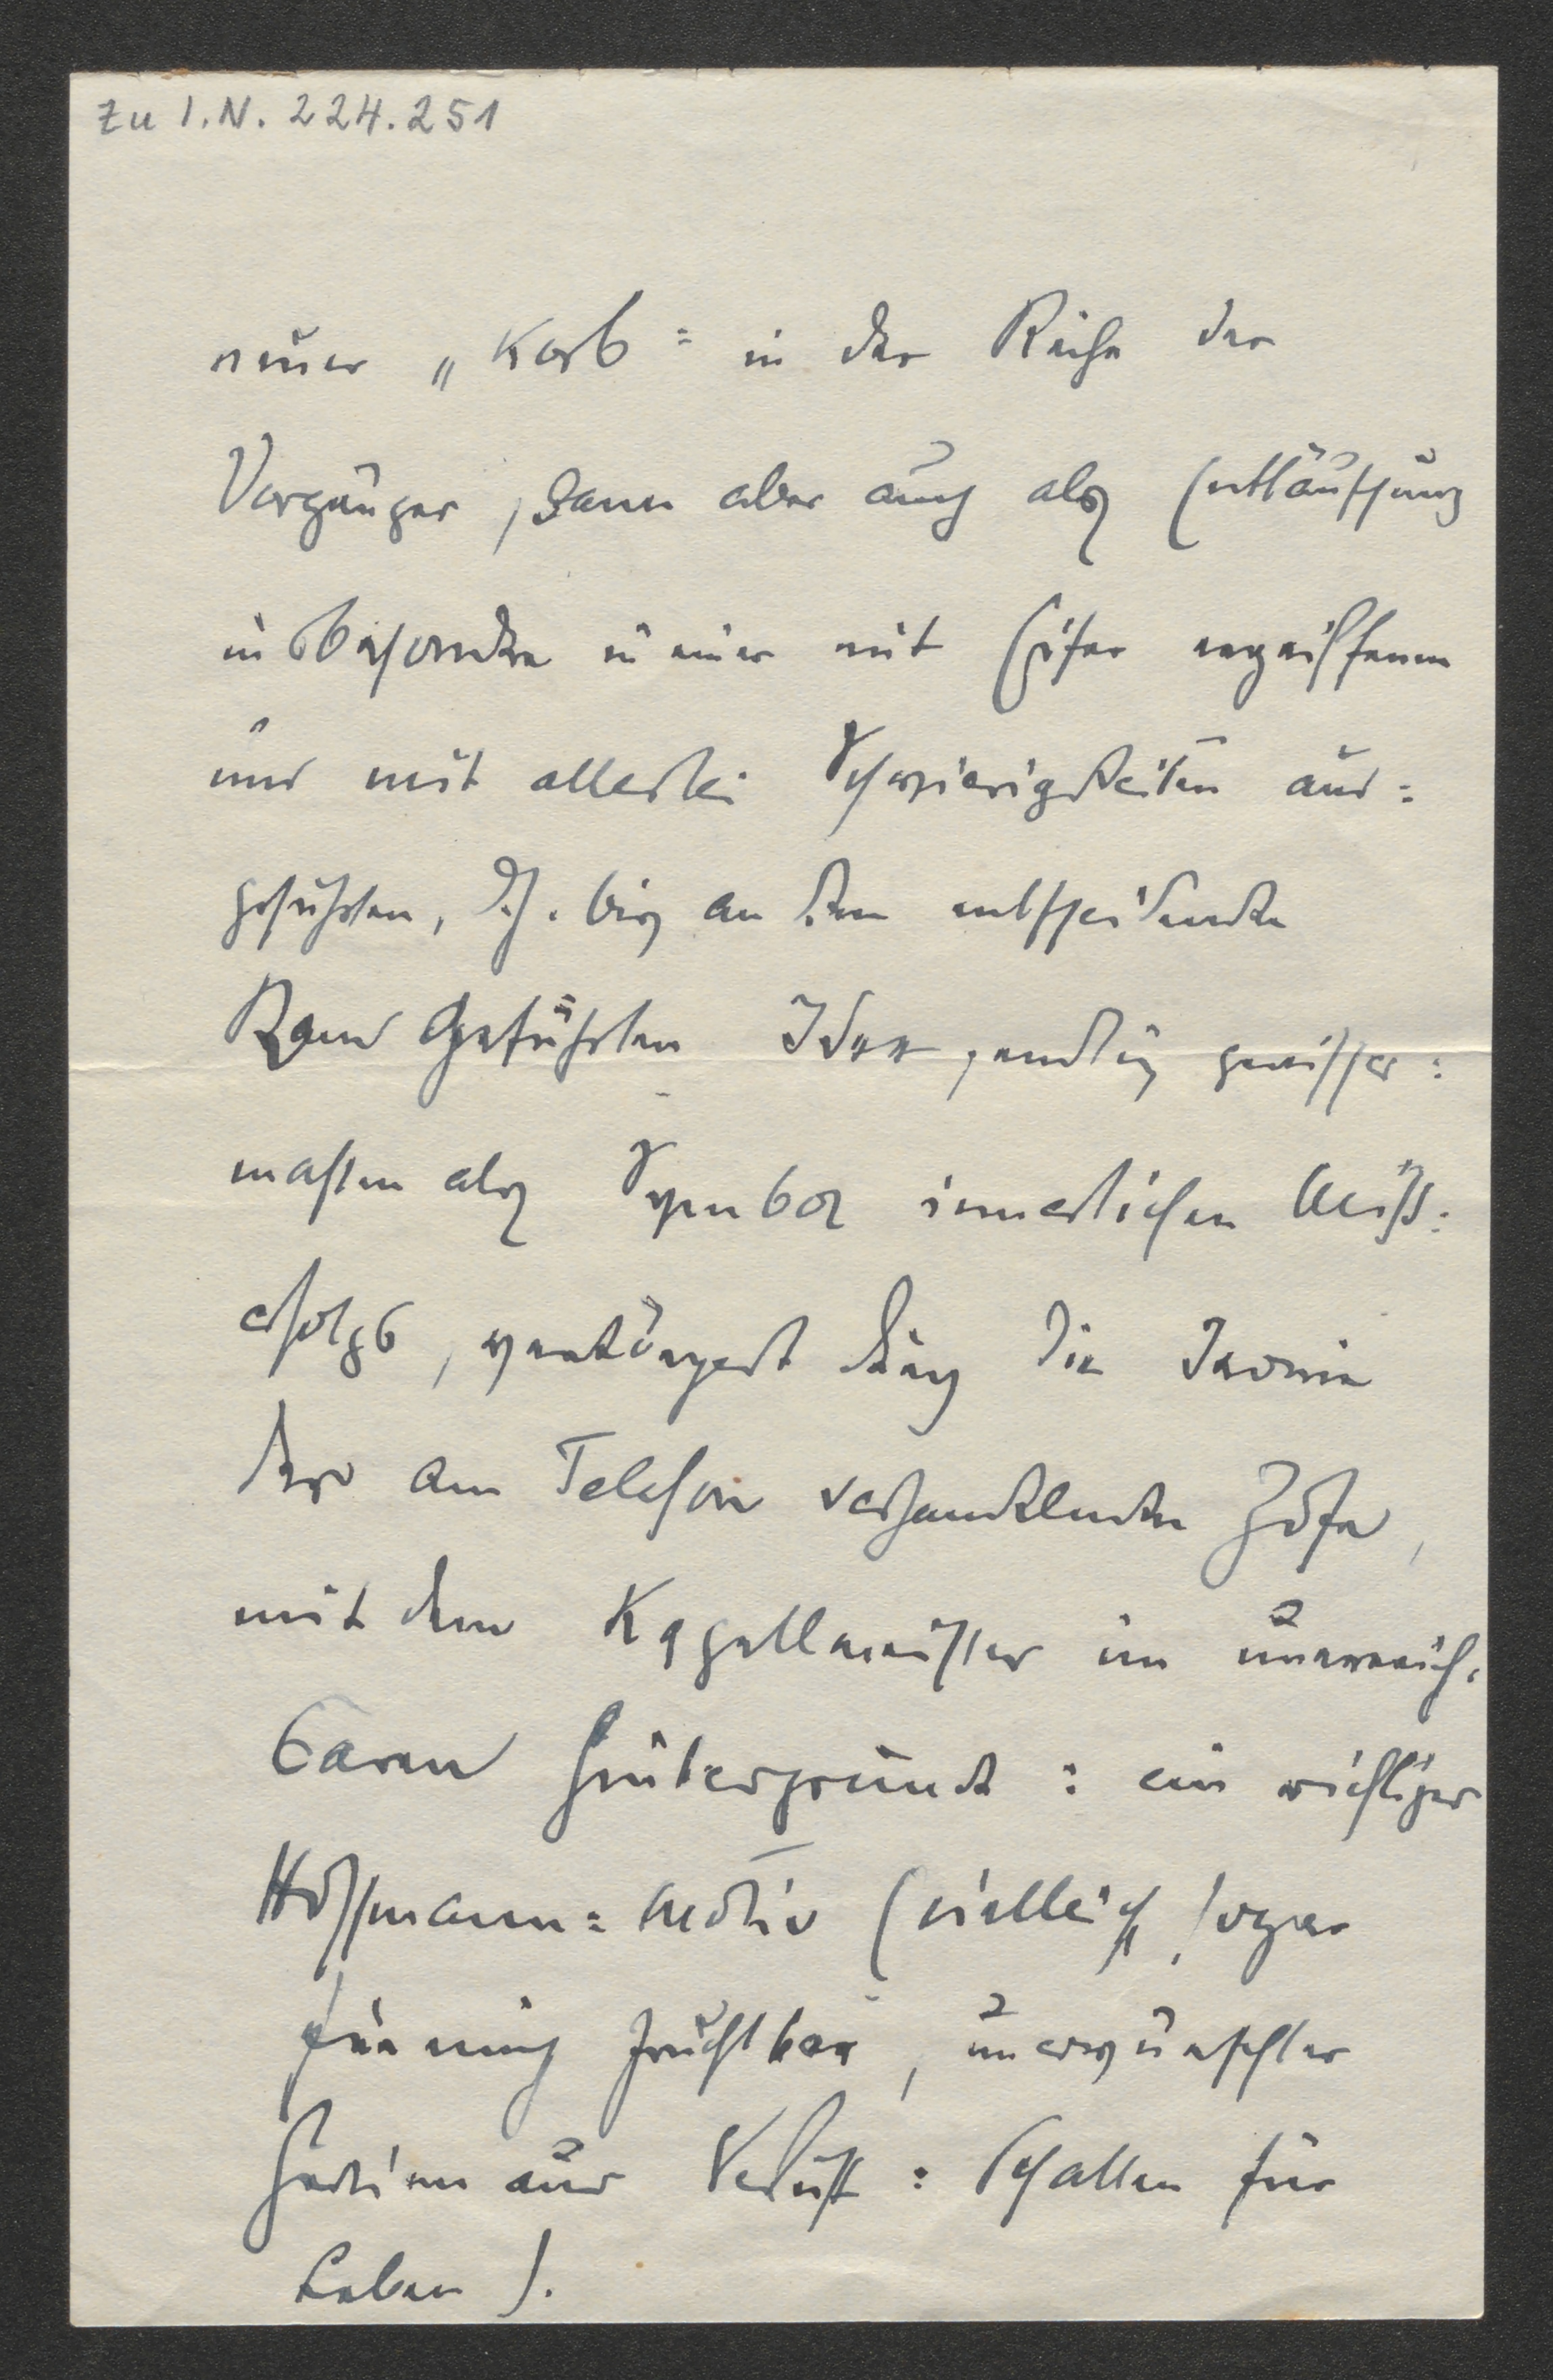 Zu I.N. 224.251
neuer „Korb" in der Reihe der
Vorgänger, dann aber auch als Enttäuschung
insbesondere einer mit Eifer ergriffenen
und mit allerlei Schwierigkeiten aus=
geführten, d.h. bis an den entscheidenden
Rand geführten Idee, endlich gewisser=
maßen als Symbol innerlichen Miß=
erfolgs, verkörpert durch die Ironie
der am Telefon verhandelnden Zofe,
mit dem Kapellmeister im unerreich=
baren Hintergrund: ein richtiges
Hoffmann=Motiv (vielleicht sogar
für mich fruchtbar, unerwünschter
Gewinn aus Verlust: Schatten für
Leben).